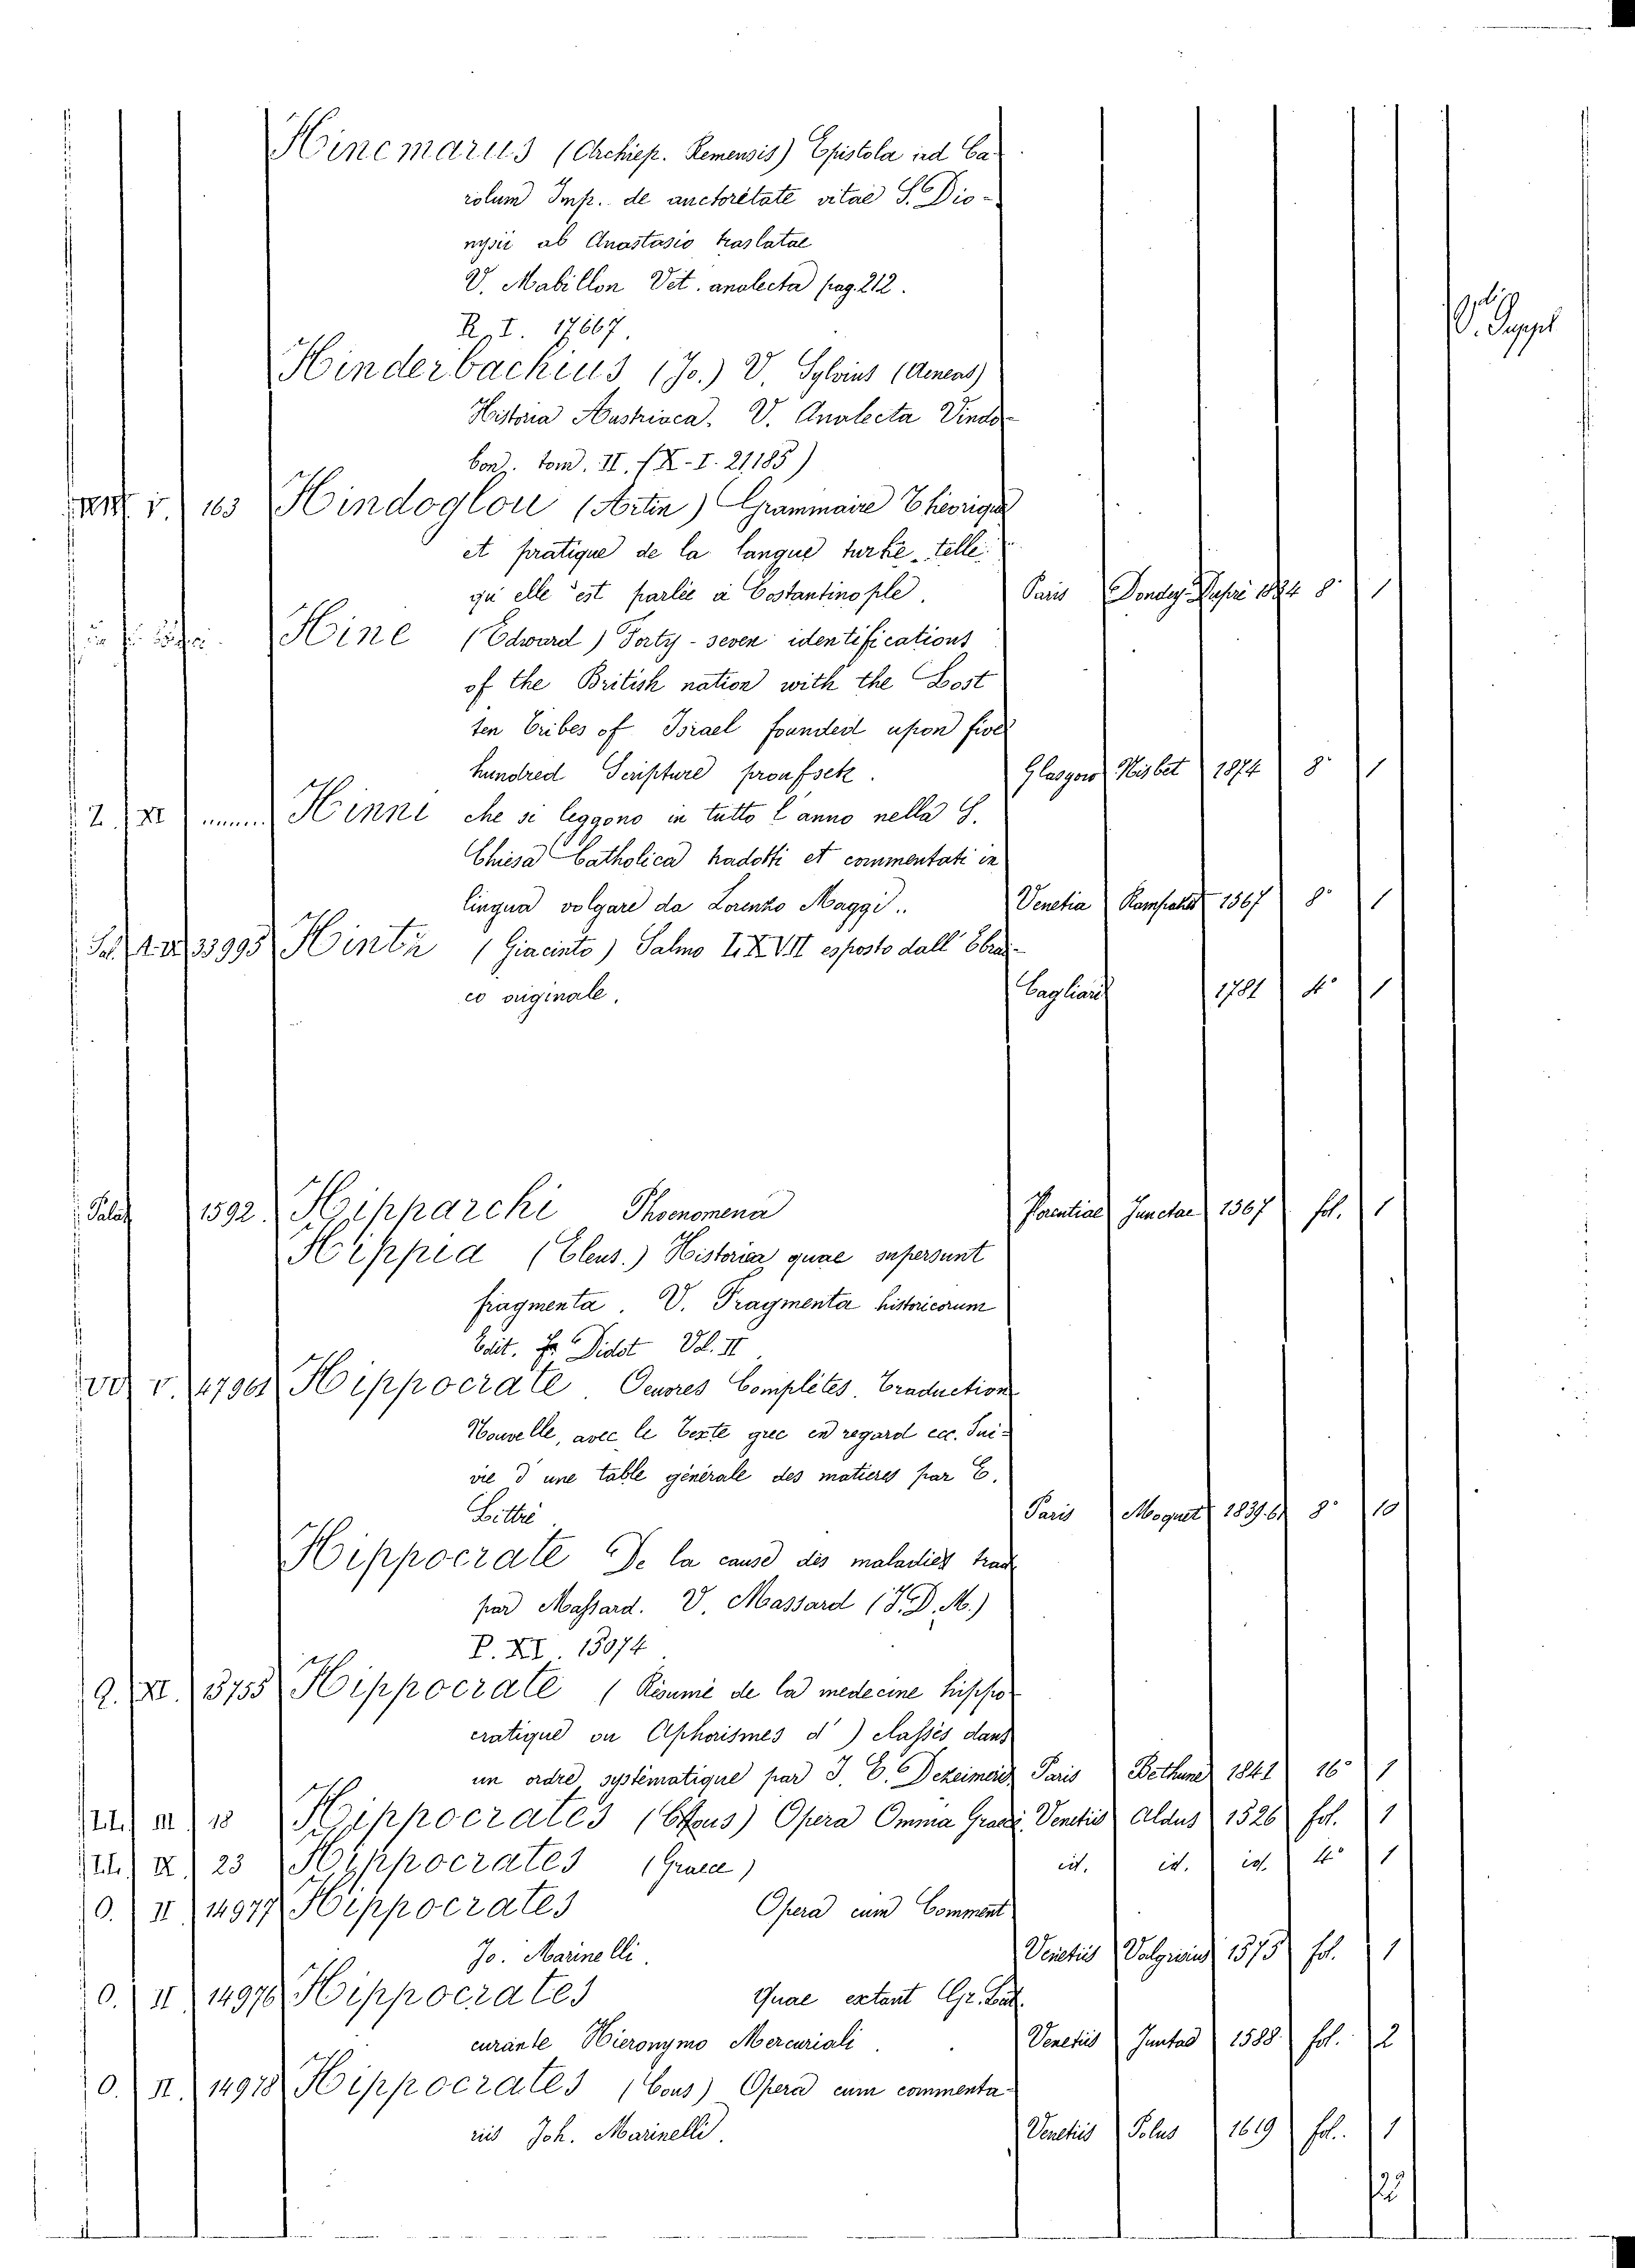 Hincmarus (Archiep. Remensis) Epistola ad Ca
rolum Imp. de auctoritate vitae S. Dio-
nysii ab Anastasio traslatae
V. Mabillon Vet. analecta pag. 212.
R. I. 17667.
V. Suppl
Hinderbachius (Jo.) V. Sylvius (Aeneas)
Historia Austriaca. V. Analecta Vindo-
bon. tom. II. (X-I. 21185)
V. 163 Hindoglou (Artin) Grammaire Thèorique
et pratique de la langue turke telle
qu'elle est parlée a Costantinople. Paris Dondey-Dupré 1834 8° 1
Hine (Edward) Forty-seven identifications
of the British nation with the Lost
ten Tribes of Israel founded upon five
hundred Scripture proufsek. Glasgow Nisbet 1874 8° 1
2. XI Hinni che si leggono in tutto l'anno nella S.
Chiesa Catholica tradotti et commentati in
lingua volgare da Lorenzo Maggi.. Venetia Rampazet 1567 8° 1
33995 Hintz (Giacinto) Salmo LXVII esposto dall' Ebrai-
co originale. Cagliari 1781 4° 1
Palat 1592. Hipparchi Phoenomena Florentiae Junctae 1567 fol. 1
Hippia (Eleus.) Historica quae supersunt
fragmenta. V. Fragmenta historicorum
Edit. Fr. Didot Vol. II
V. 4796 Hippocrate. Oeuvres Complètes. Traduction
Nouvelle, avec le Texte grec en regard ecc. Sui-
vie d'une table générale des matieres par E.
Littré. Paris Moquet 1839.61 8° 10
Hippocrate De la cause des maladies trad
par Massard. V. Massard (J. D. M.)
P. XI. 15074
Q. XI. 13755 Hippocrate (Résumé de la medecine hippo
cratique ou Aphorismes d') classés dans
un ordre systématique par J. E. Dezeimeris Paris Bethune 1841 16° 1
LL. III 18 Hippocrates (Cous) Opera Omnia Graece Venetiis Aldus 1526 fol. 1
LL. IX 23 Hippocrates (Graece) id. id. id. 4° 1
O. II 14977 Hippocrates Opera cum Comment
Jo. Marinelli. Venetiis Valgrisius 1575 fol. 1
O. II 14976 Hippocrates Quae extant Gr. Lat.
curante Hieronymo Mercuriali. Venetiis Juntas 1588 fol. 2
O. II. 14978 Hippocrates (Cous) Opera cum commenta-
riis Joh. Marinelli. Venetiis Polus 1619 fol. 1